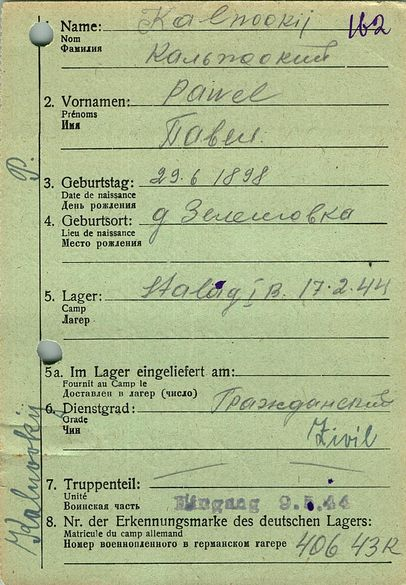 1. Name: Kalnockij 162
Nom
Фамилия
2. Vornamen: Pawel
Prénoms
Имя Павел.
3. Geburtstag: 29.6 1898
Date de naissance
День рождения
4. Geburtsort: д
Lieu de naissance
Место рождения
5. Lager: Stalag I B. 17.2.44
Camp
Лагер
5a. Im Lager eingeliefert am:
Fournit au Camp le
Доставлен в лагер (число)
6. Dienstgrad: Гражданский
Grade
Чин Zivil
7. Truppenteil:
Unité
Воинская часть Eingang 9.5.44
8. Nr. der Erkennungsmarke des deutschen Lagers:
Matricule du camp allemand
Номер военнопленного в германском лагере 406 43R
P.